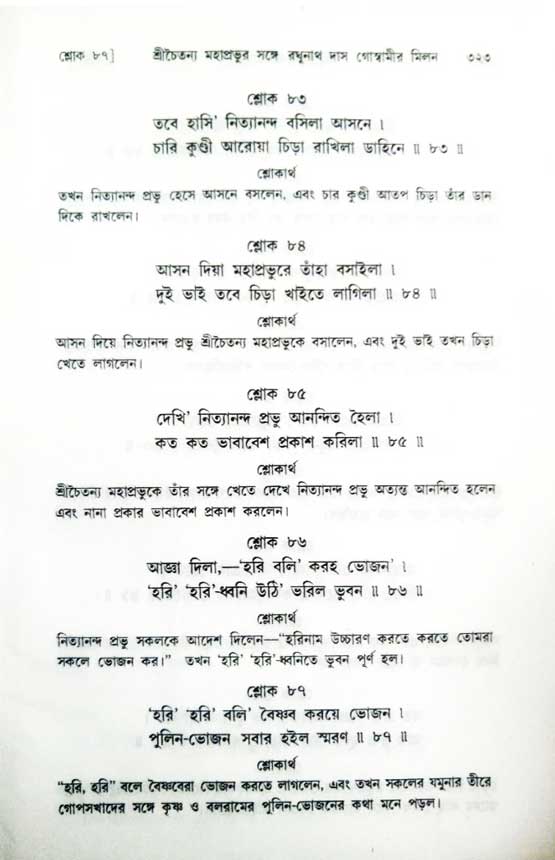 শ্লোক ৮৭]    শ্রীচৈতন্য মহাপ্রভুর সঙ্গে রঘুনাথ দাস গোস্বামীর মিলন    ৩২৩
শ্লোক ৮৩
তবে হাসি' নিত্যানন্দ বসিলা আসনে ।
চারি কুণ্ডী আরোয়া চিড়া রাখিলা ডাহিনে ॥ ৮৩ ॥
শ্লোকার্থ
তখন নিত্যানন্দ প্রভু হেসে আসনে বসলেন, এবং চার কুণ্ডী আতপ চিড়া তাঁর ডান
দিকে রাখলেন।
শ্লোক ৮৪
আসন দিয়া মহাপ্রভুরে তাঁহা বসাইলা ।
দুই ভাই তবে চিড়া খাইতে লাগিলা ॥ ৮৪ ॥
শ্লোকার্থ
আসন দিয়ে নিত্যানন্দ প্রভু শ্রীচৈতন্য মহাপ্রভুকে বসালেন, এবং দুই ভাই তখন চিড়া
খেতে লাগলেন।
শ্লোক ৮৫
দেখি' নিত্যানন্দ প্রভু আনন্দিত হৈলা ।
কত কত ভাবাবেশ প্রকাশ করিলা ॥ ৮৫ ॥
শ্লোকার্থ
শ্রীচৈতন্য মহাপ্রভুকে তাঁর সঙ্গে খেতে দেখে নিত্যানন্দ প্রভু অত্যন্ত আনন্দিত হলেন
এবং নানা প্রকার ভাবাবেশ প্রকাশ করলেন।
শ্লোক ৮৬
আজ্ঞা দিলা,—'হরি বলি' করহ ভোজন' ।
'হরি' 'হরি'-ধ্বনি উঠি' ভরিল ভুবন ॥ ৮৬ ॥
শ্লোকার্থ
নিত্যানন্দ প্রভু সকলকে আদেশ দিলেন—"হরিনাম উচ্চারণ করতে করতে তোমরা
সকলে ভোজন কর।" তখন 'হরি' 'হরি'-ধ্বনিতে ভুবন পূর্ণ হল।
শ্লোক ৮৭
'হরি' 'হরি' বলি' বৈষ্ণব করয়ে ভোজন ।
পুলিন-ভোজন সবার হইল স্মরণ ॥ ৮৭ ॥
শ্লোকার্থ
"হরি, হরি" বলে বৈষ্ণবেরা ভোজন করতে লাগলেন, এবং তখন সকলের যমুনার তীরে
গোপসখাদের সঙ্গে কৃষ্ণ ও বলরামের পুলিন-ভোজনের কথা মনে পড়ল।